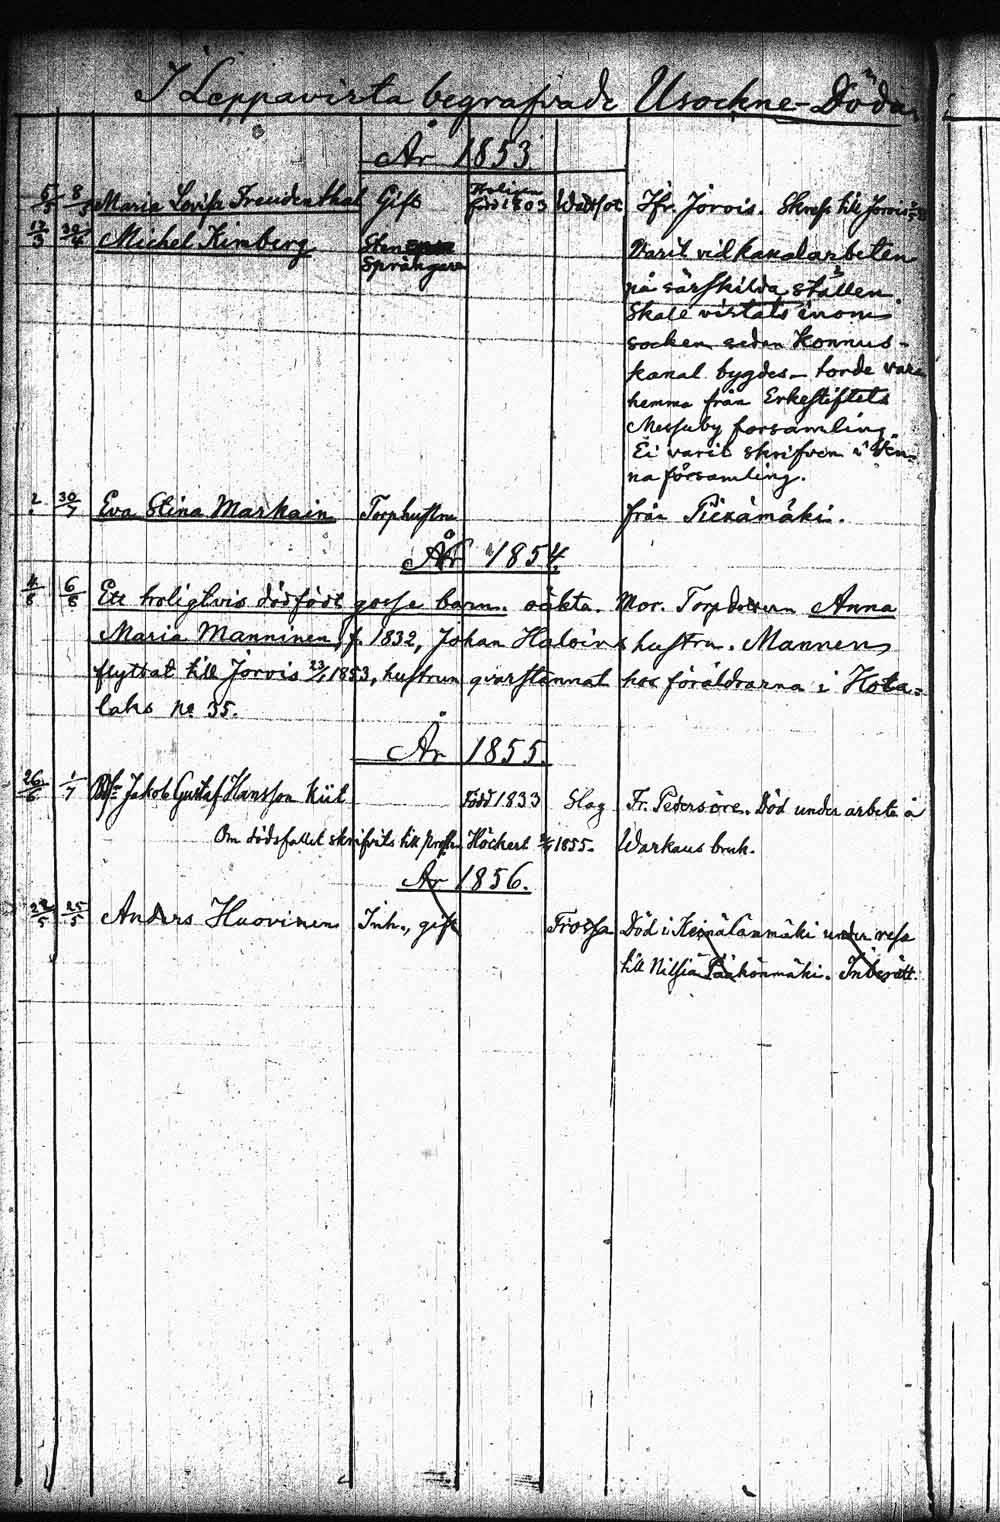 I Leppavirta begrafvade Usockne-Döda.
År 1853.
5/3 8/3 Maria Lovisa Freudenthal Gift född 1803 Wattsot Ifr. Jorois. Skrefs till Jorois
12/3 30/4 Michel Kimberg Sten
Sprängare
Varit vid kanalarbeten
på särskilda ställen.
Skall vistats inom
socken sedan Konnus-
kanal bygdes - torde vara
hemma från Erkestiftets
Messuby forsamling
Ei varit skrifven i den-
na församling.
? 30/7 Eva Stina Markain Torphustru från
År 1854.
4/8 6/8 Ett troligtvis dödfödt gosse barn. oäkta. Mor. Anna
Maria Manninen, f. 1832, Johan hustru. Mannen
flyttat till Jorois 1853, hustrun qvarstannat hos föräldrarna i Kota-
laks no 35.
År 1855.
26/6 1/7 Jakob Gustaf Hansson Kiit Född 1833 Slag Fr. Petersöre. Död under arbete å
Om dödsfallet skrifvits till Höckert 1855. Warkaus bruk.
År 1856.
22/5 25/5 Anders Huovinen Inh., gift Frossa Död i under resa
till Nilsiä